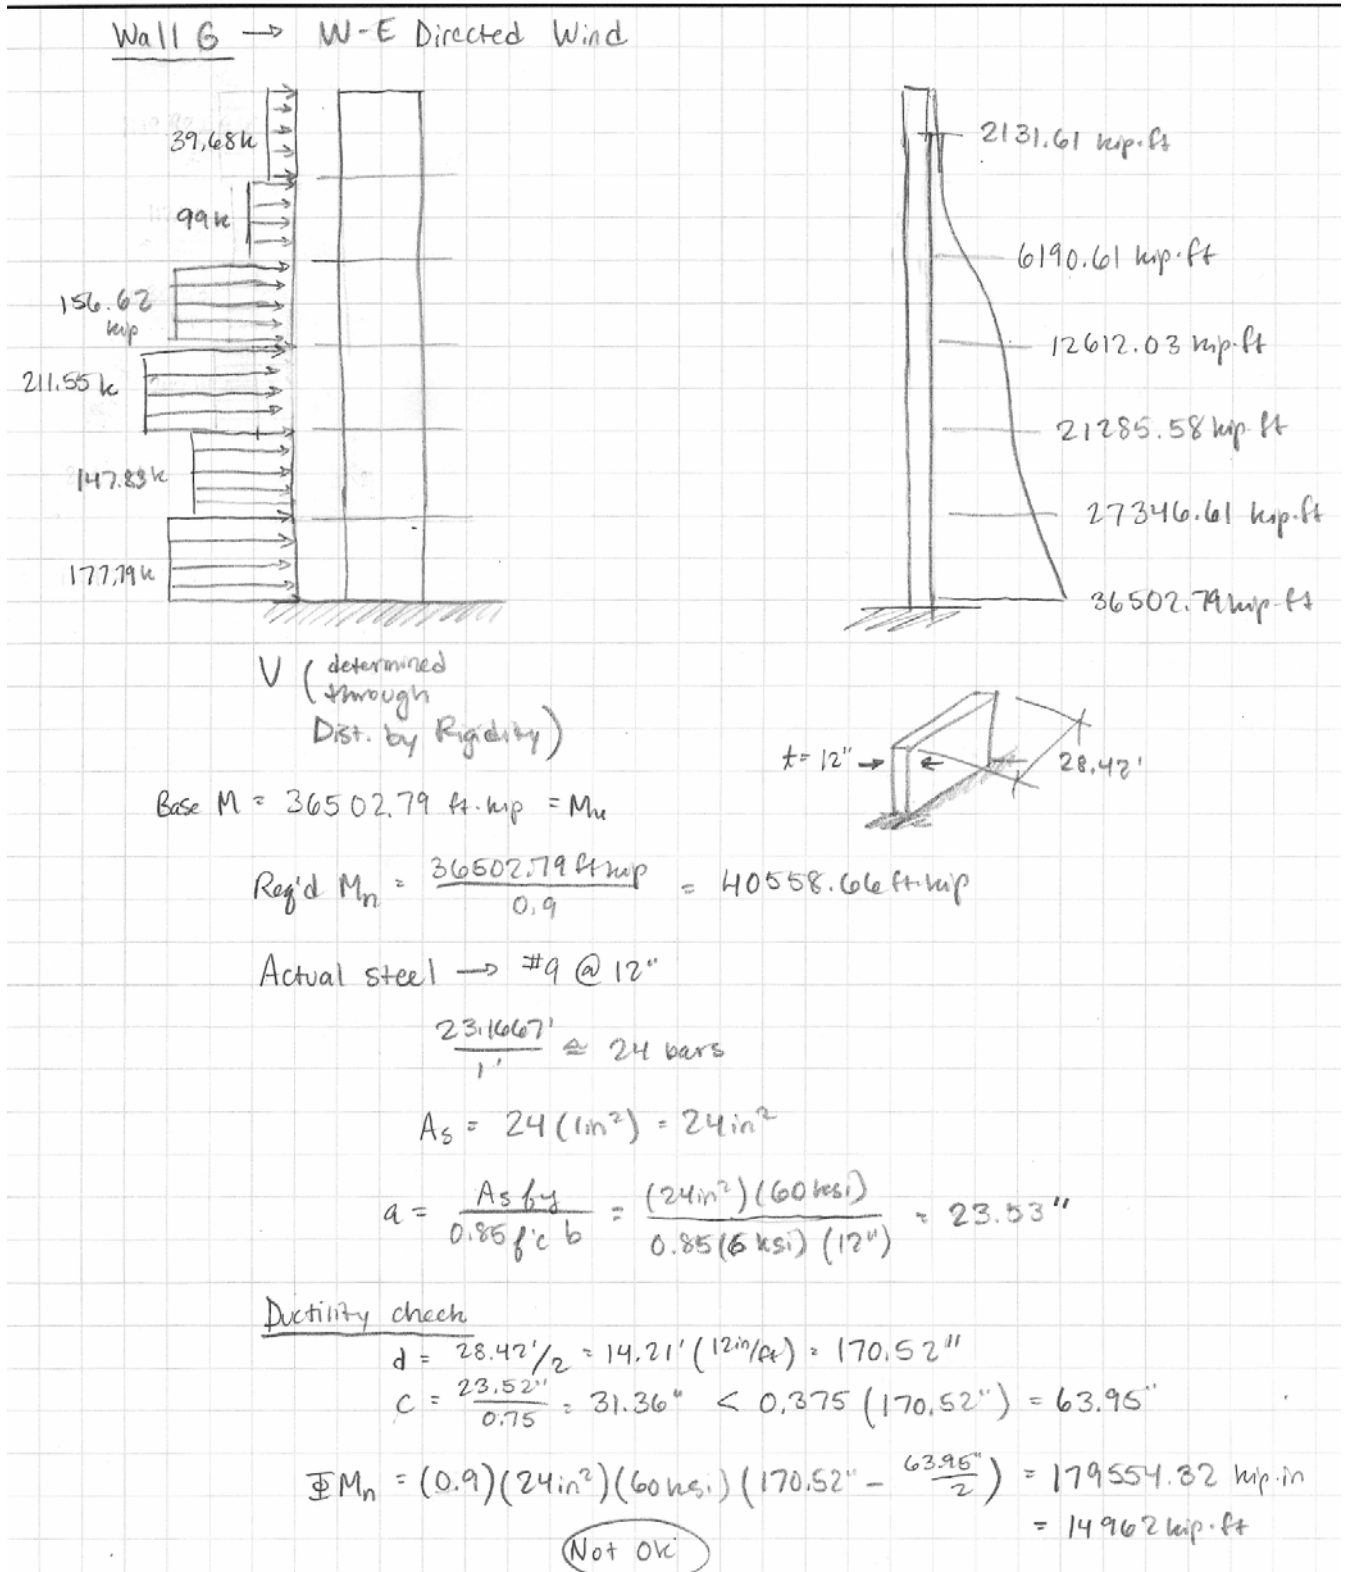 Wall G → W-E Directed Wind
39.68k
2131.61 kip·ft
99k
6190.61 kip·ft
156.62
kip
12612.03 kip·ft
211.55k
21285.58 kip·ft
147.83k
27346.61 kip·ft
177.79k
36502.79 kip·ft
V (determined
through
Dist. by Rigidity)
t= 12"
28.42'
Base M = 36502.79 ft·kip = Mu
Req'd Mn = 36502.79 ft·kip / 0.9 = 40558.66 ft·kip
Actual steel → #9 @ 12"
23.1667' / 1' ≅ 24 bars
As = 24 (1in²) = 24in²
a = As fy / 0.85 f'c b = (24in²)(60 ksi) / 0.85(6 ksi)(12") = 23.53"
Ductility check
d = 28.42'/2 = 14.21' (12in/ft) = 170.52"
c = 23.52" / 0.75 = 31.36" < 0.375 (170.52") = 63.95"
ΦMn = (0.9)(24in²)(60ksi)(170.52" - 63.95"/2) = 179554.32 kip·in
= 14962 kip·ft
Not OK